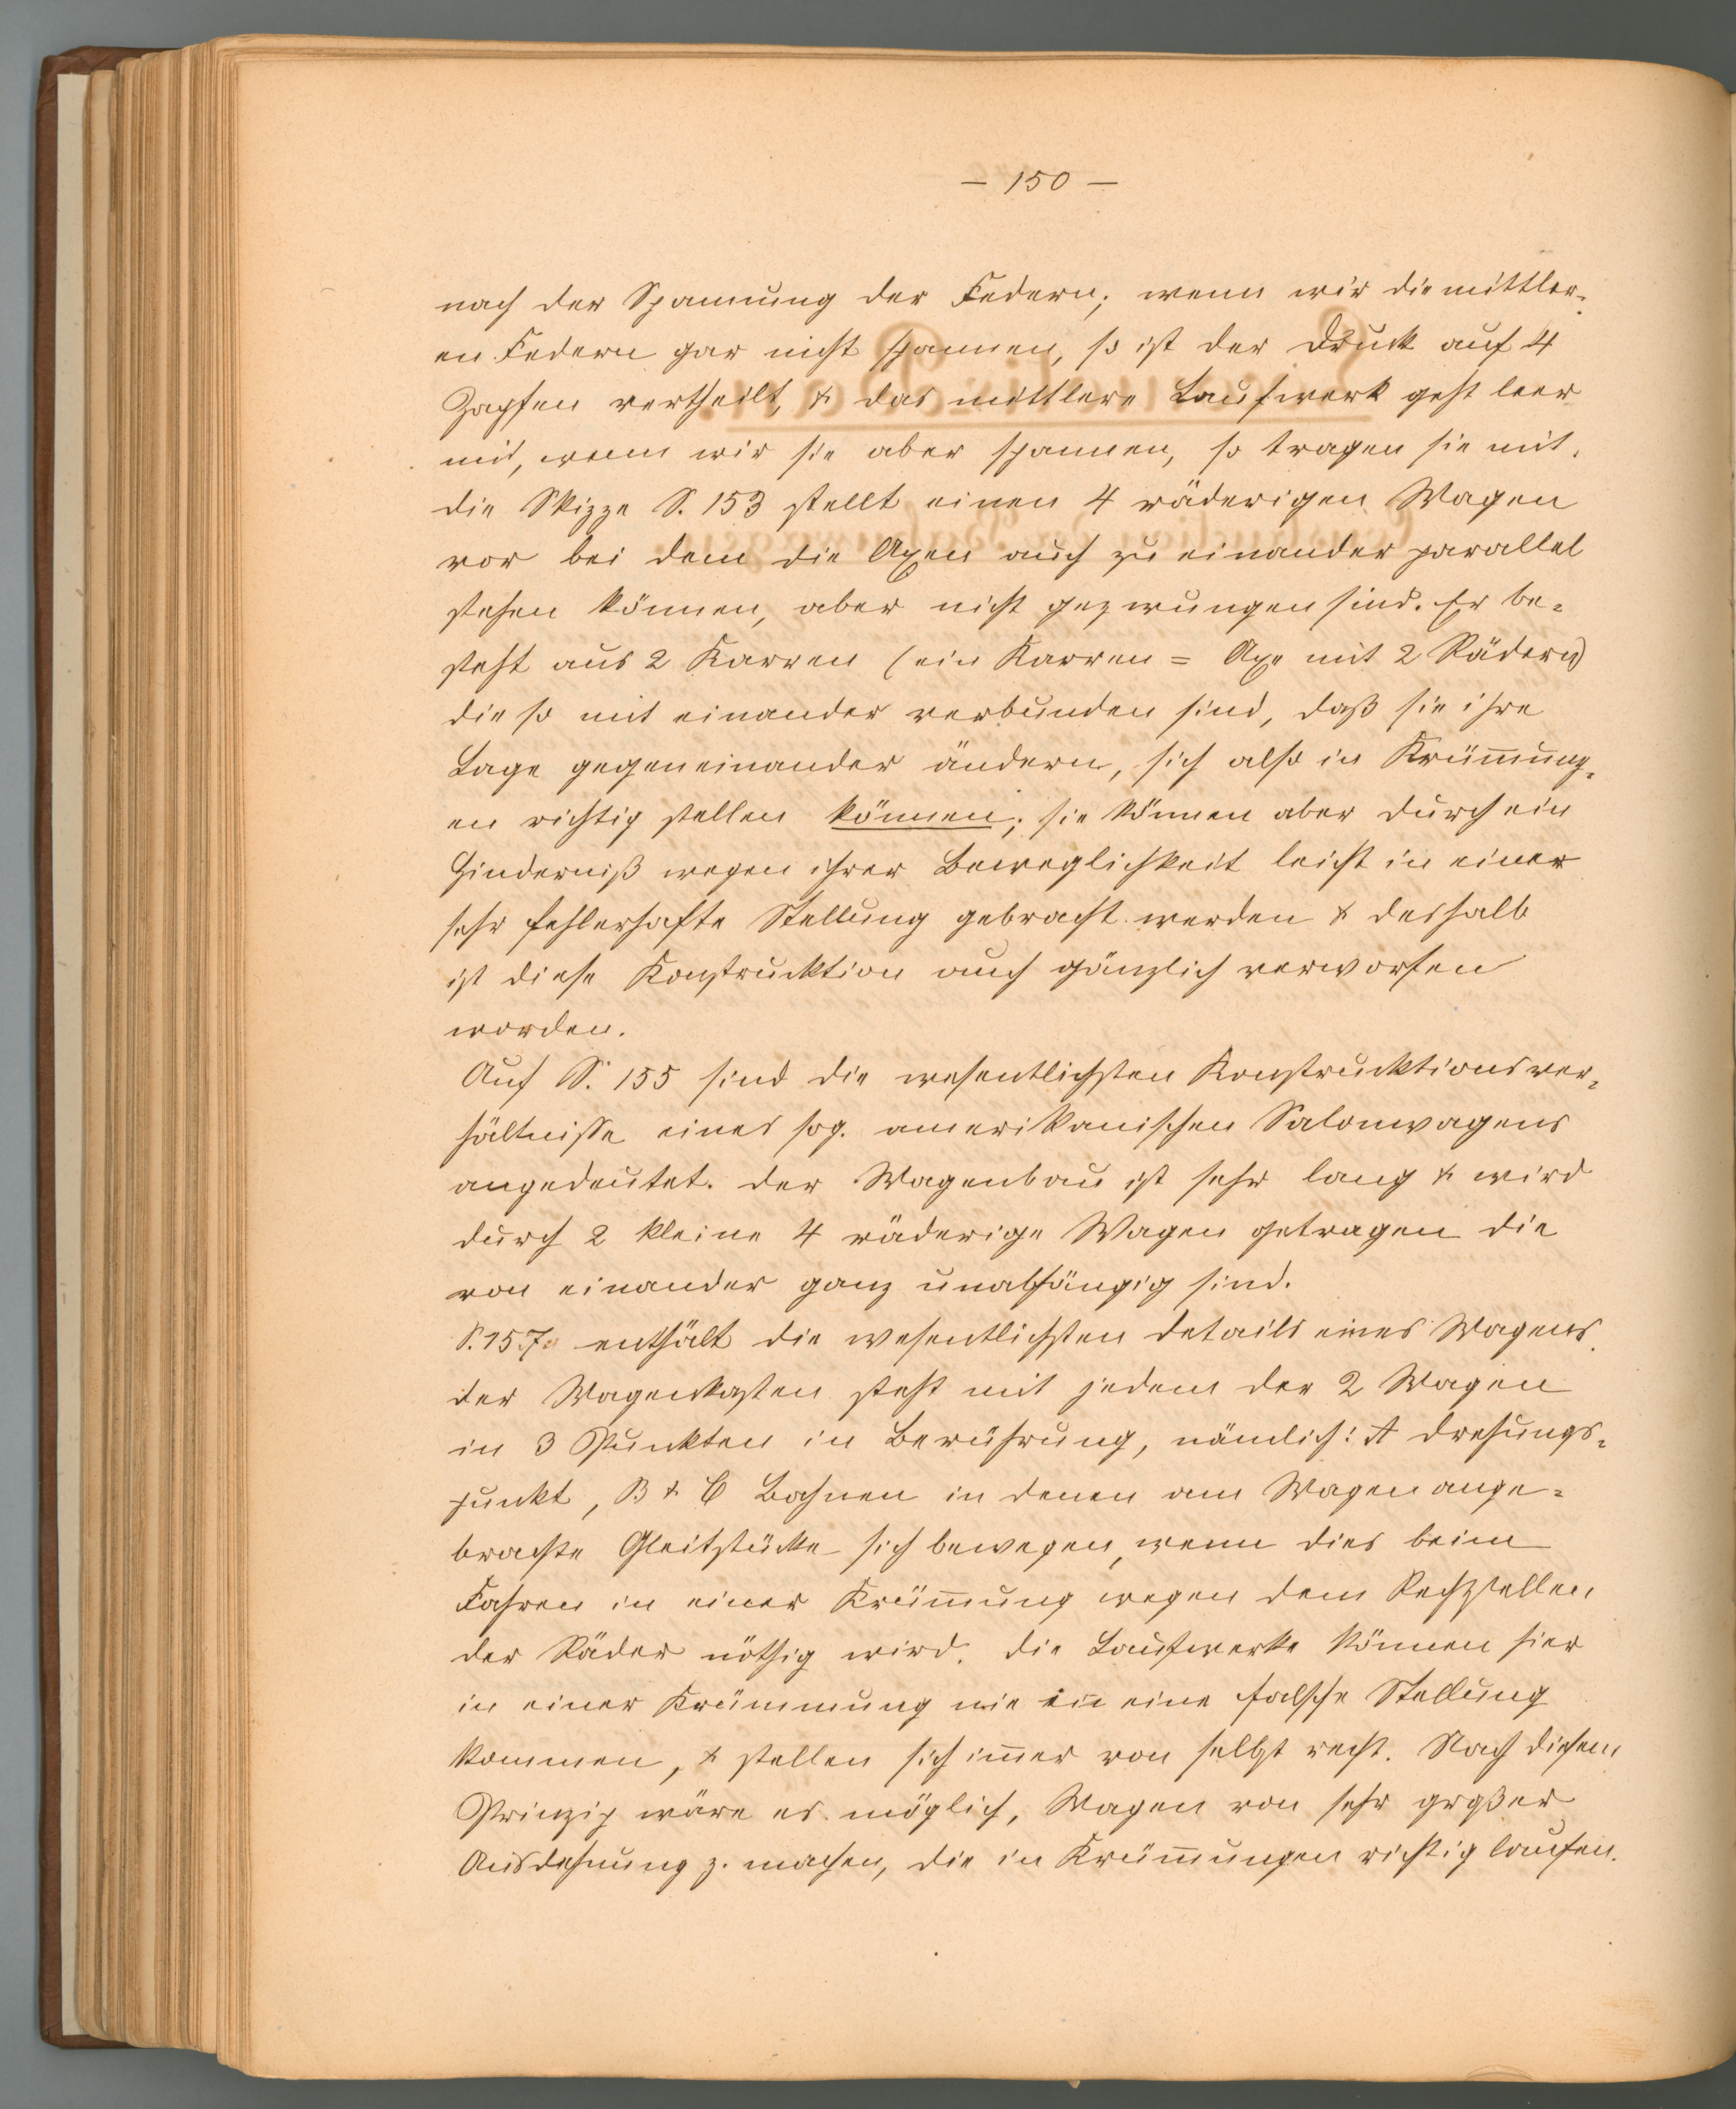 — 150 —
nach der Spannung der Federn; wenn wir die mittler-
en Federn gar nicht spannen, so ist der Druck auf 4
Zapfen vertheilt, & das mittlere Laufwerk geht leer
mit, wenn wir sie aber spannen, so tragen sie mit.
die Skizze S. 153 stellt einen 4 räderigen Wagen
vor bei dem die Axen auch zu einander parallel
stehen können, aber nicht gezwungen sind. Er be-
steht aus 2 Karren (ein Karren = Axe mit 2 Rädern)
die so mit einander verbunden sind, daß sie ihre
Lage gegeneinander ändern, sich also in Krüm̅ung-
en richtig stellen können; sie können aber durch ein
Hinderniß wegen ihrer Beweglichkeit leicht in einer
sehr fehlerhafte Stellung gebracht werden & deshalb
ist diese Konstrucktion auch gänzlich verworfen
worden.
Auf S. 155 sind die wesentlichsten Konstrucktionsver-
hältnisse eines sog. amerikanischen Salonwagens
angedeutet. der Wagenbau ist sehr lang & wird
durch 2 kleine 4 räderige Wagen getragen die
von einander ganz unabhängig sind.
S. 157 enthält die wesentlichsten details eines Wagens.
der Wagenkasten steht mit jedem der 2 Wagen
in 3 Punkten in Berührung, nämlich: A drehungs-
punkt, B & C Bahnen in denen am Wagen ange-
brachte Gleitstücke sich bewegen, wenn dies beim
Fahren in einer Krüm̅ung wegen dem Rechtstellen
der Räder nöthig wird. die Laufwerke können hier
in einer Krümmung nie in eine falsche Stellung
kommen, & stellen sich im̅er von selbst recht. Nach diesem
Prinzip wäre es möglich, Wagen von sehr großer
Ausdehnung z. machen, die in Krüm̅ungen richtig laufen.